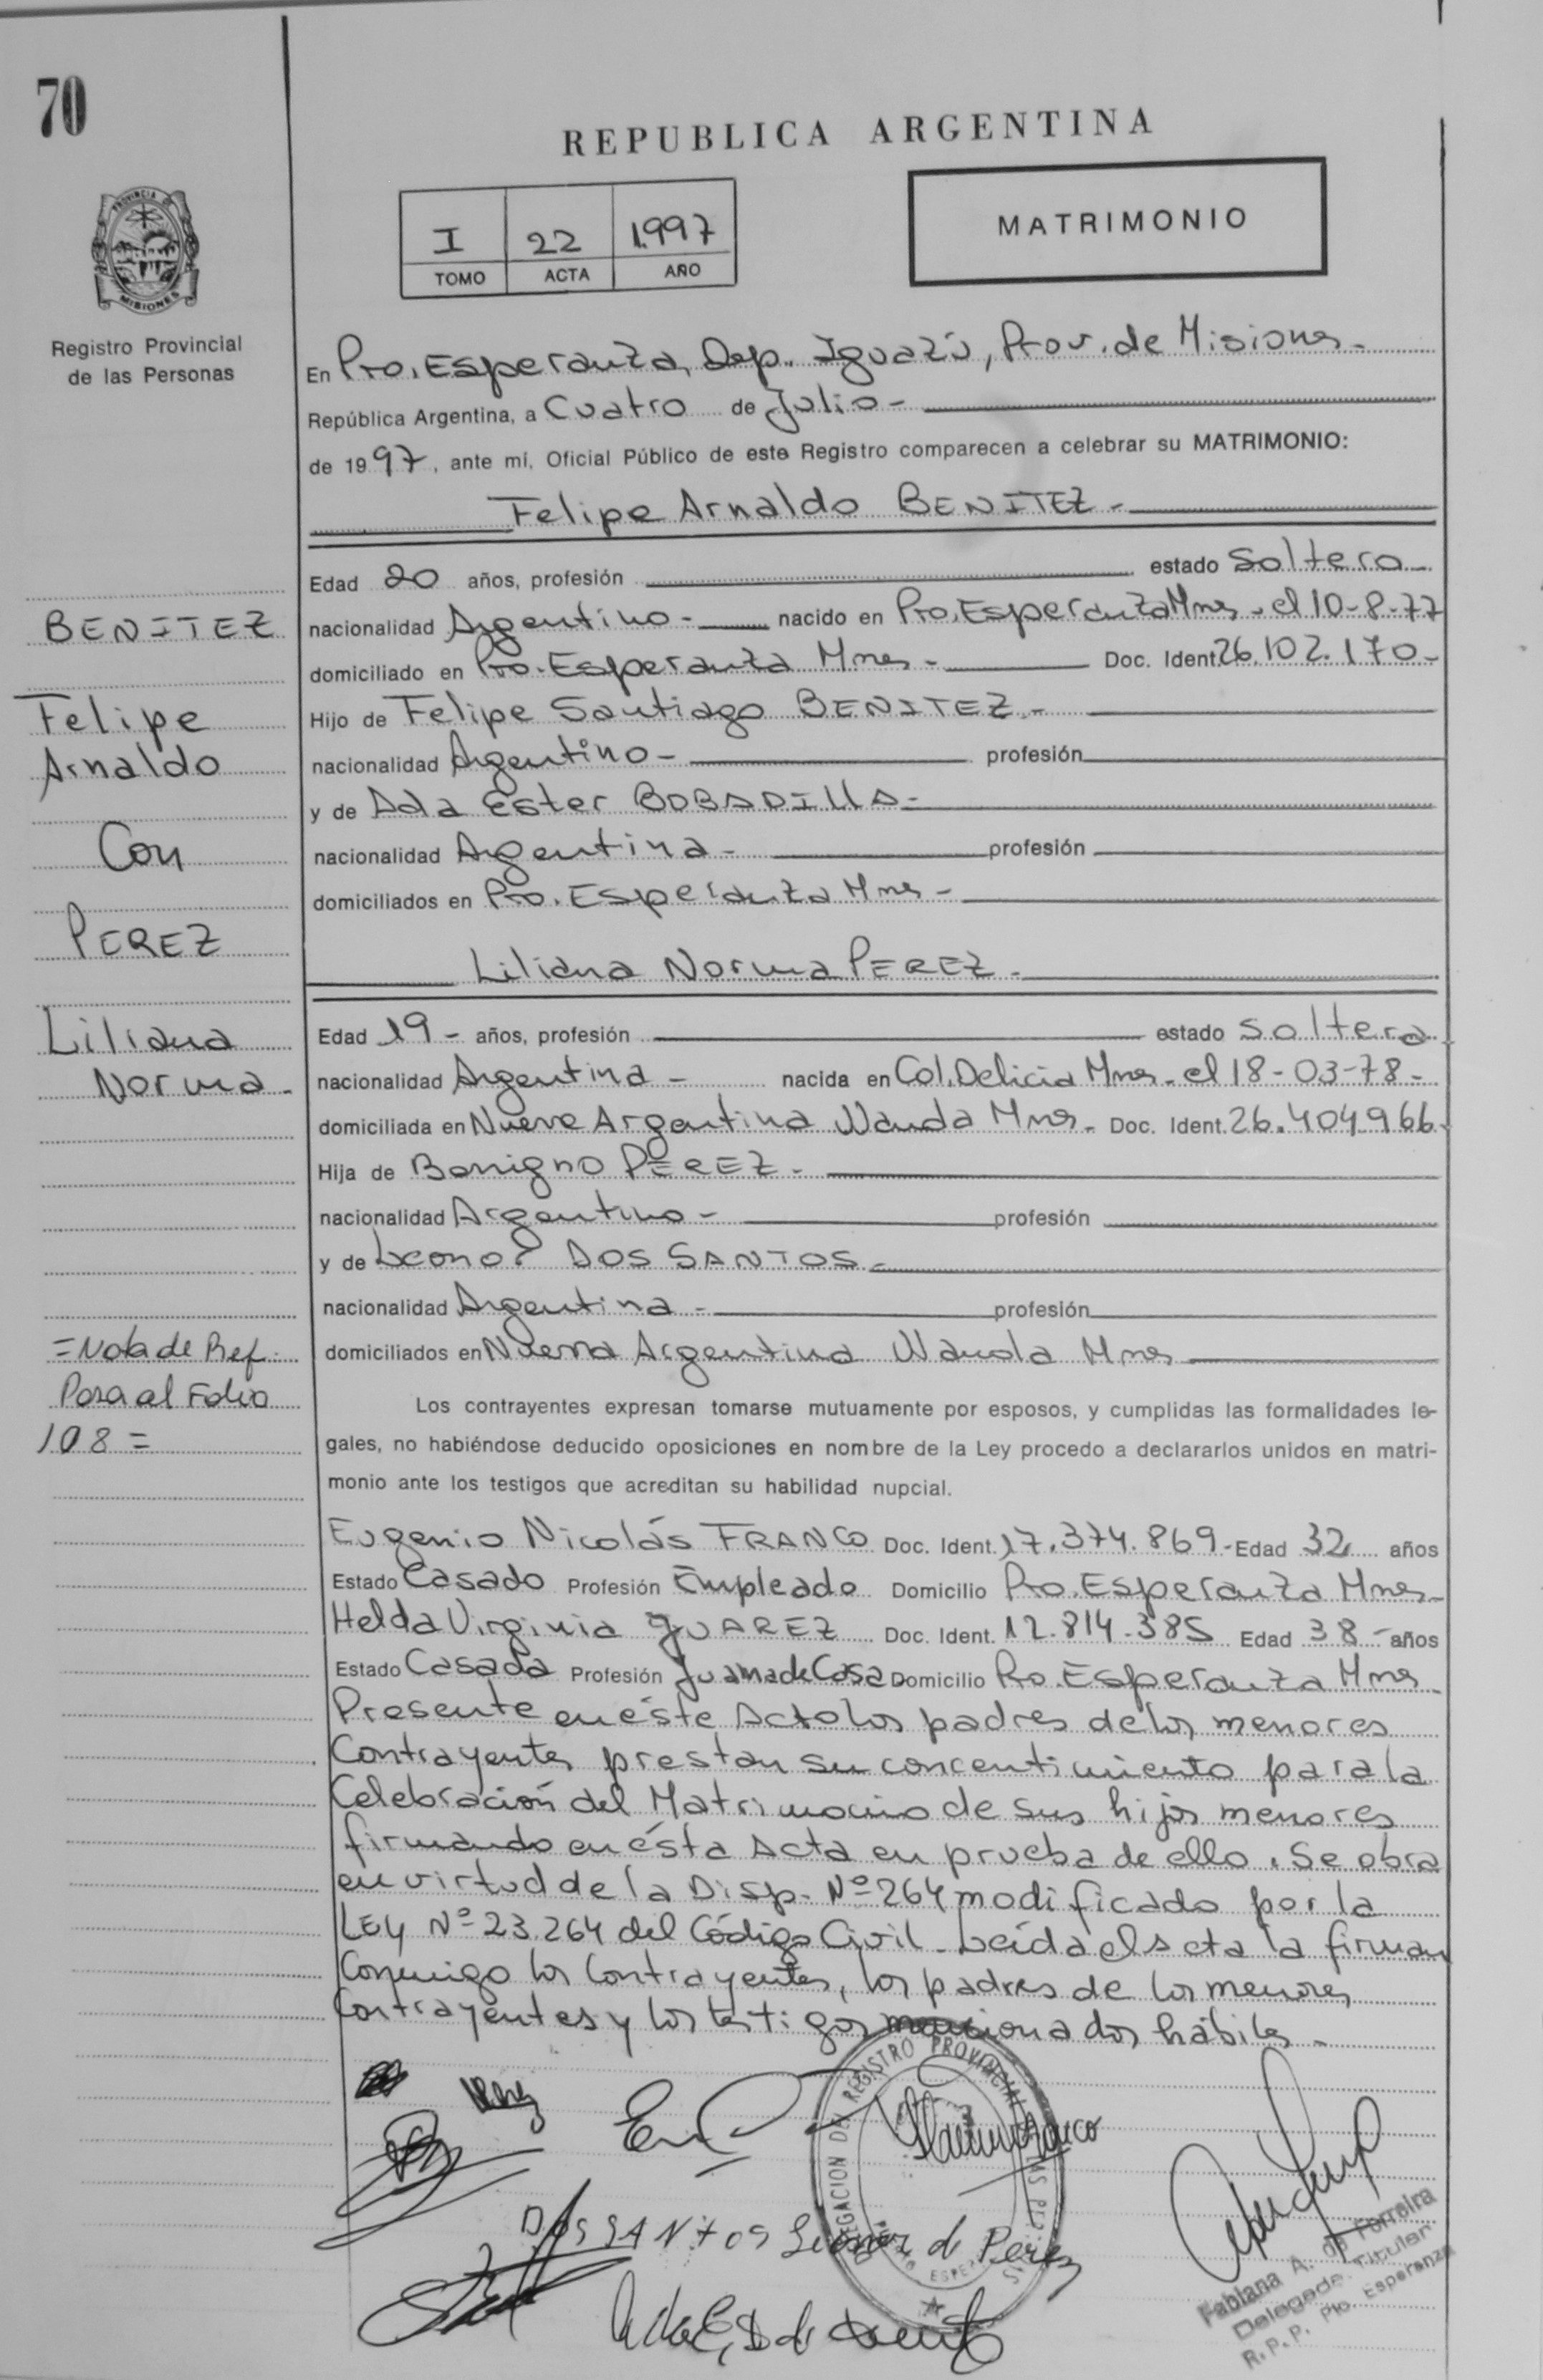 70
REPUBLICA ARGENTINA
I 22 1.997
TOMO ACTA AÑO
MATRIMONIO
PROVINCIA DE
MISIONES
Registro Provincial
de las Personas
En Pto. Esperanza, Dep. Iguazú, Prov. de Misiones.-
República Argentina, a Cuatro de Julio-
de 1997, ante mí, Oficial Público de este Registro comparecen a celebrar su MATRIMONIO:
Felipe Arnaldo BENITEZ.-
Edad 20 años, profesión estado Soltero
nacionalidad Argentino.- nacido en Pto. Esperanza Mnes.- el 10-8-77
domiciliado en Pto. Esperanza Mnes.- Doc. Ident. 26.102.170-
Hijo de Felipe Santiago BENITEZ.-
nacionalidad Argentino- profesión
y de Ada Ester BOBADILLA-
nacionalidad Argentina- profesión
domiciliados en Pto. Esperanza Mnes-
Liliana Norma PEREZ.-
Edad 19- años, profesión estado Soltera
nacionalidad Argentina- nacida en Col. Delicia Mnes.- el 18-03-78-
domiciliada en Nueva Argentina Wanda Mnes.- Doc. Ident. 26.404.966-
Hija de Benigno PEREZ.-
nacionalidad Argentino- profesión
y de DOS SANTOS.-
nacionalidad Argentina- profesión
domiciliados en Nueva Argentina Wanda Mnes
BENITEZ
Felipe
Arnaldo
Con
PEREZ
Liliana
Norma-
=Nota de Ref.
Pasa al Folio
108=
Los contrayentes expresan tomarse mutuamente por esposos, y cumplidas las formalidades le-
gales, no habiéndose deducido oposiciones en nombre de la Ley procedo a declararlos unidos en matri-
monio ante los testigos que acreditan su habilidad nupcial.
Eugenio Nicolás FRANCO Doc. Ident. 17.374.869- Edad 32 años
Estado Casado Profesión Empleado Domicilio Pto. Esperanza Mnes-
Helda Virginia JUAREZ Doc. Ident. 12.814.385 Edad 38- años
Estado Casada Profesión de Casa Domicilio Pto. Esperanza Mnes-
Presente en éste Acto los padres de los menores
Contrayentes prestan su concentimiento para la
Celebración del Matrimonio de sus hijos menores
firmando en ésta Acta en prueba de ello. Se obra
en virtud de la Disp. Nº 264 modificado por la
LEY Nº 23.264 del Código Civil- Leída el Acta la firman
Conmigo los Contrayentes, los padres de los menores
Contrayentes y los testigos mencionados hábiles-
DELEGACION DEL REGISTRO PROVINCIAL
DOS SANtOS Leonor de Perez
Fabiana A. de Ferreira
Delegada Titular
R.P.P. Pto. Esperanza